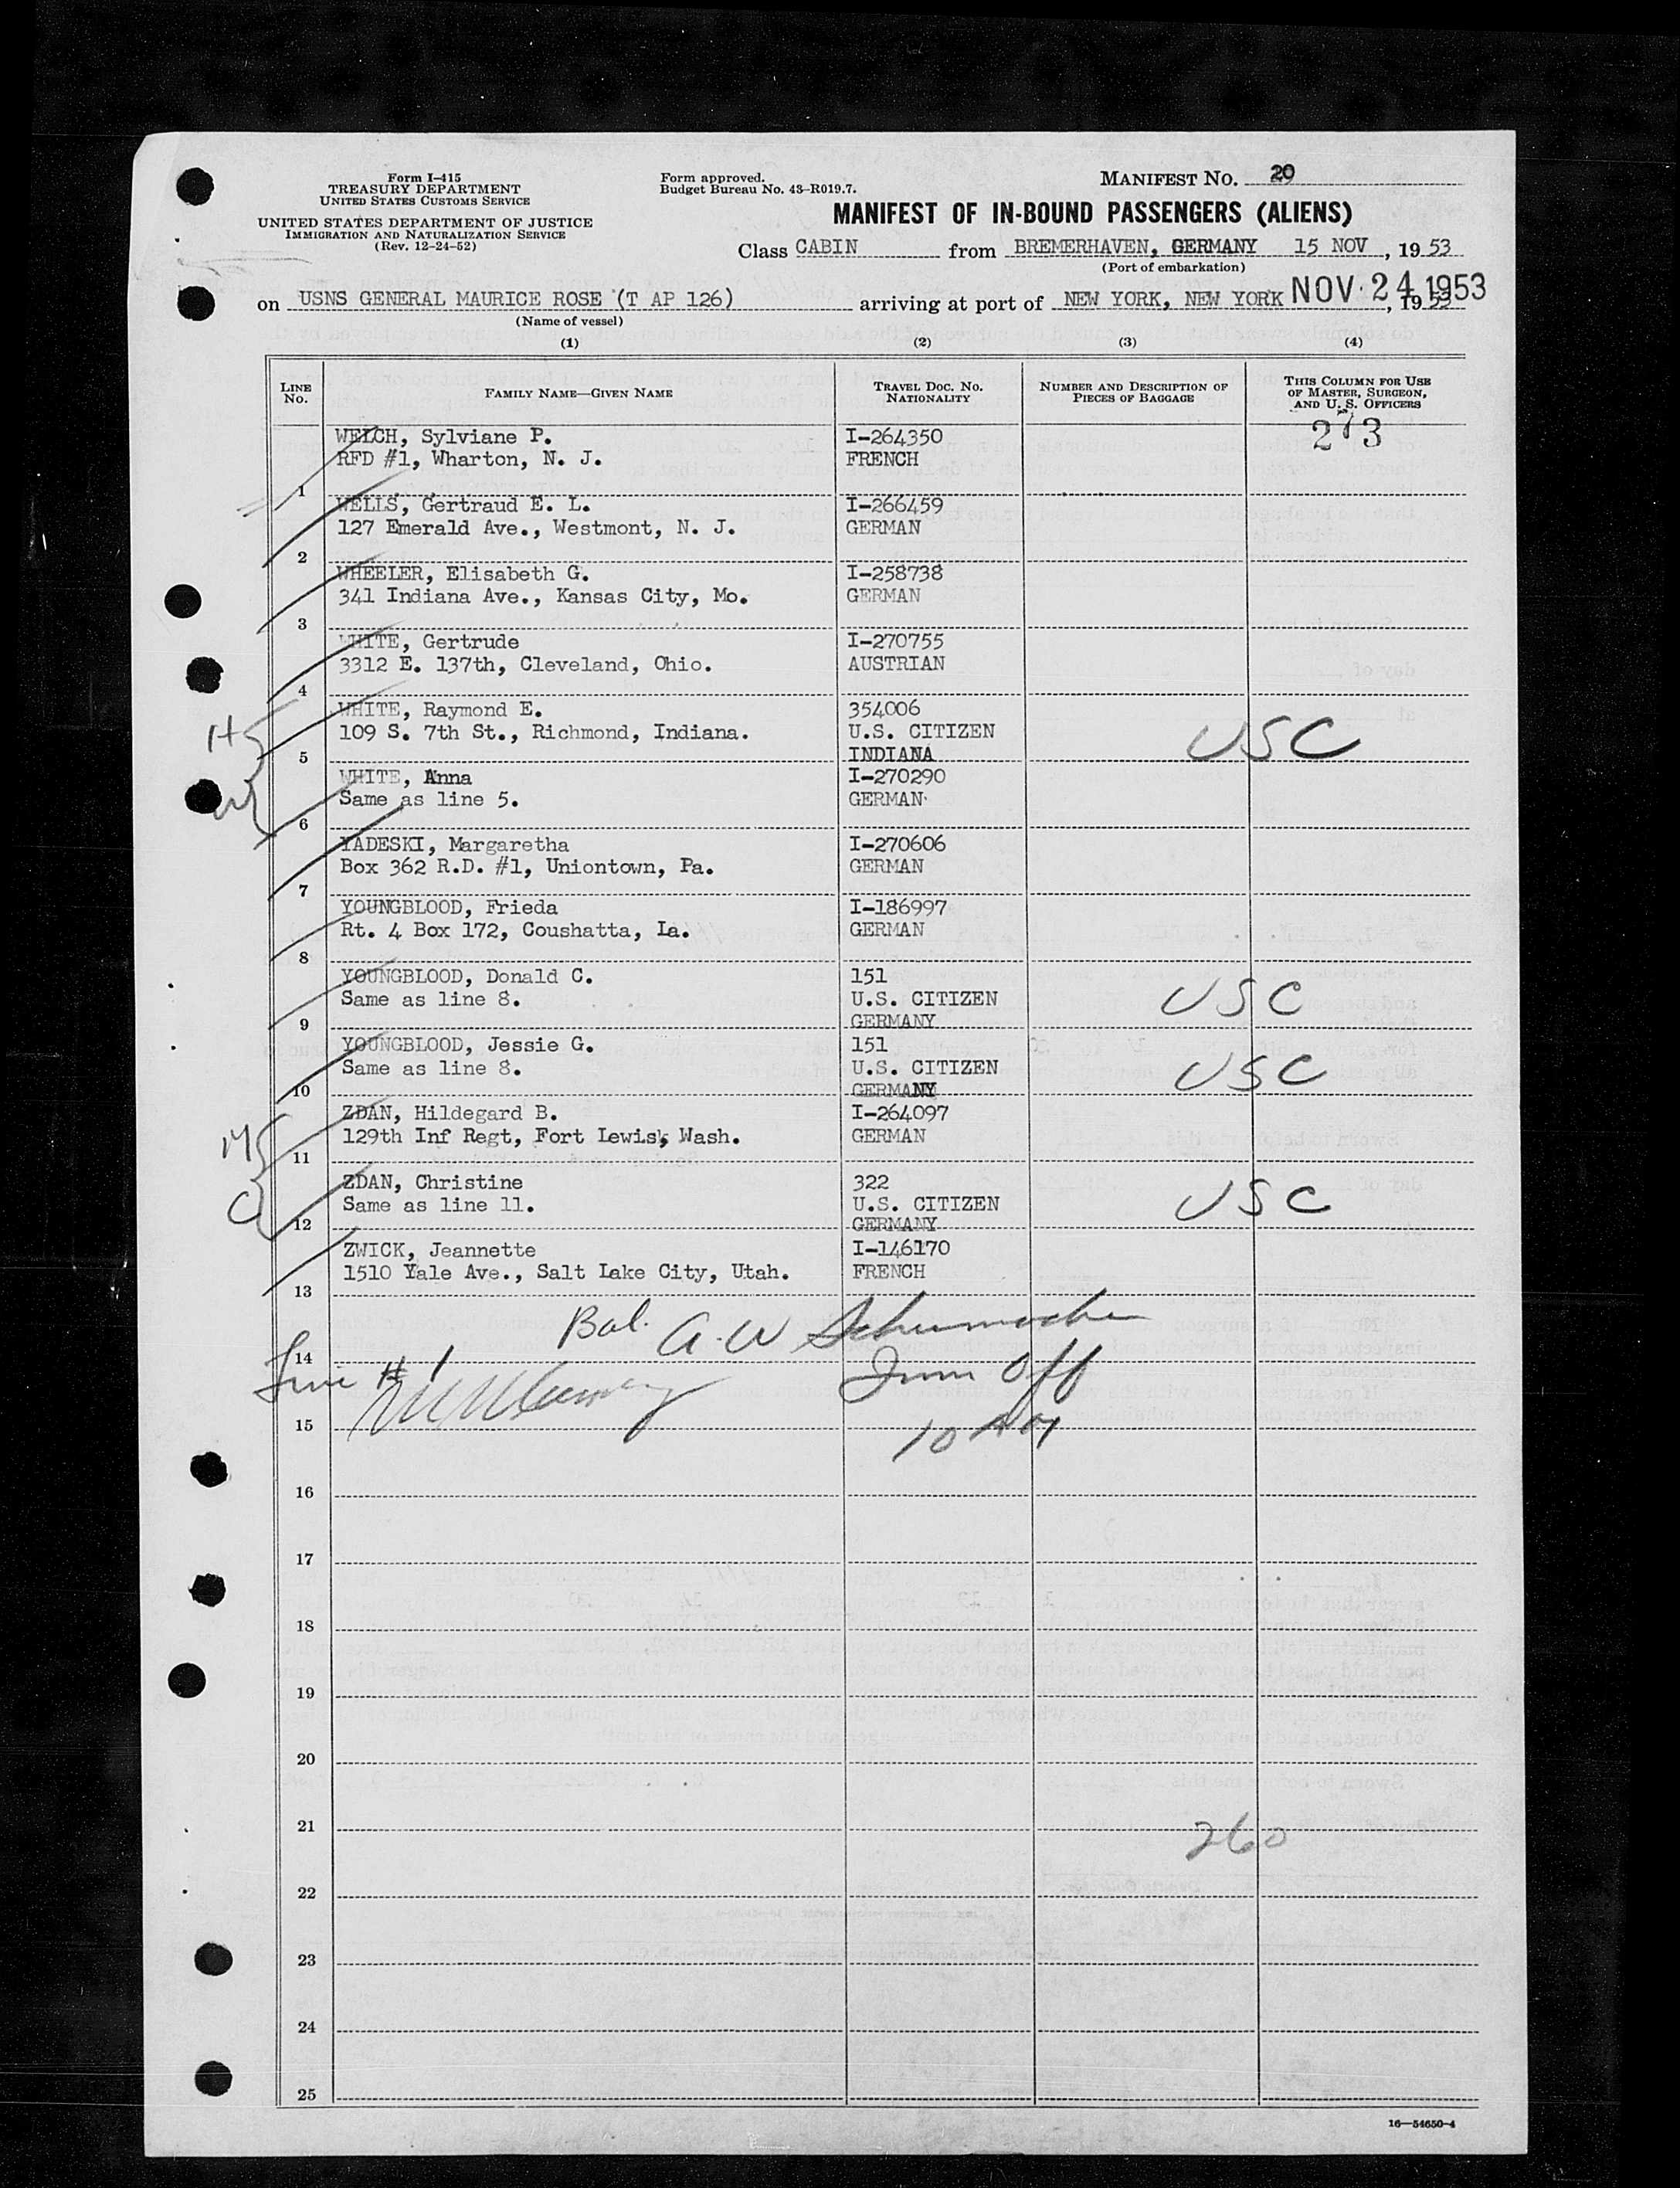 Form I-415
TREASURY DEPARTMENT
UNITED STATES CUSTOMS SERVICE
UNITED STATES DEPARTMENT OF JUSTICE
IMMIGRATION AND NATURALIZATION SERVICE
(Rev. 12-24-52)
Form approved.
Budget Bureau No. 43-R019.7.
MANIFEST NO. 20
MANIFEST OF IN-BOUND PASSENGERS (ALIENS)
Class CABIN from BREMERHAVEN, GERMANY 15 NOV, 1953
(Port of embarkation)
on USNS GENERAL MAURICE ROSE (T AP 126) arriving at port of NEW YORK, NEW YORK NOV 24 1953, 1953
(Name of vessel)
(1) (2) (3) (4)
LINE NO.
FAMILY NAME—GIVEN NAME
TRAVEL DOC. NO. NATIONALITY
NUMBER AND DESCRIPTION OF PIECES OF BAGGAGE
THIS COLUMN FOR USE OF MASTER, SURGEON, AND U. S. OFFICERS
273
WELCH, Sylviane P. I-264350
RFD #1, Wharton, N. J. FRENCH
1
WELLS, Gertraud E. L. I-266459
127 Emerald Ave., Westmont, N. J. GERMAN
2
WHEELER, Elisabeth G. I-258738
341 Indiana Ave., Kansas City, Mo. GERMAN
3
WHITE, Gertrude I-270755
3312 E. 137th, Cleveland, Ohio. AUSTRIAN
4
WHITE, Raymond E. 354006
H 109 S. 7th St., Richmond, Indiana. U.S. CITIZEN USC
5 INDIANA
WHITE, Anna I-270290
W Same as line 5. GERMAN
6
YADESKI, Margaretha I-270606
Box 362 R.D. #1, Uniontown, Pa. GERMAN
7
YOUNGBLOOD, Frieda I-186997
Rt. 4 Box 172, Coushatta, La. GERMAN
8
YOUNGBLOOD, Donald C. 151
Same as line 8. U.S. CITIZEN USC
9 GERMANY
YOUNGBLOOD, Jessie G. 151
Same as line 8. U.S. CITIZEN USC
10 GERMANY
ZDAN, Hildegard B. I-264097
M 129th Inf Regt, Fort Lewis, Wash. GERMAN
11
ZDAN, Christine 322
C Same as line 11. U.S. CITIZEN USC
12 GERMANY
ZWICK, Jeannette I-146170
1510 Yale Ave., Salt Lake City, Utah. FRENCH
13
Bal. A. W Schumacher
14
Line #1 Imm Off
15
10
16
17
18
19
20
21
260
22
23
24
25
16—54650-4